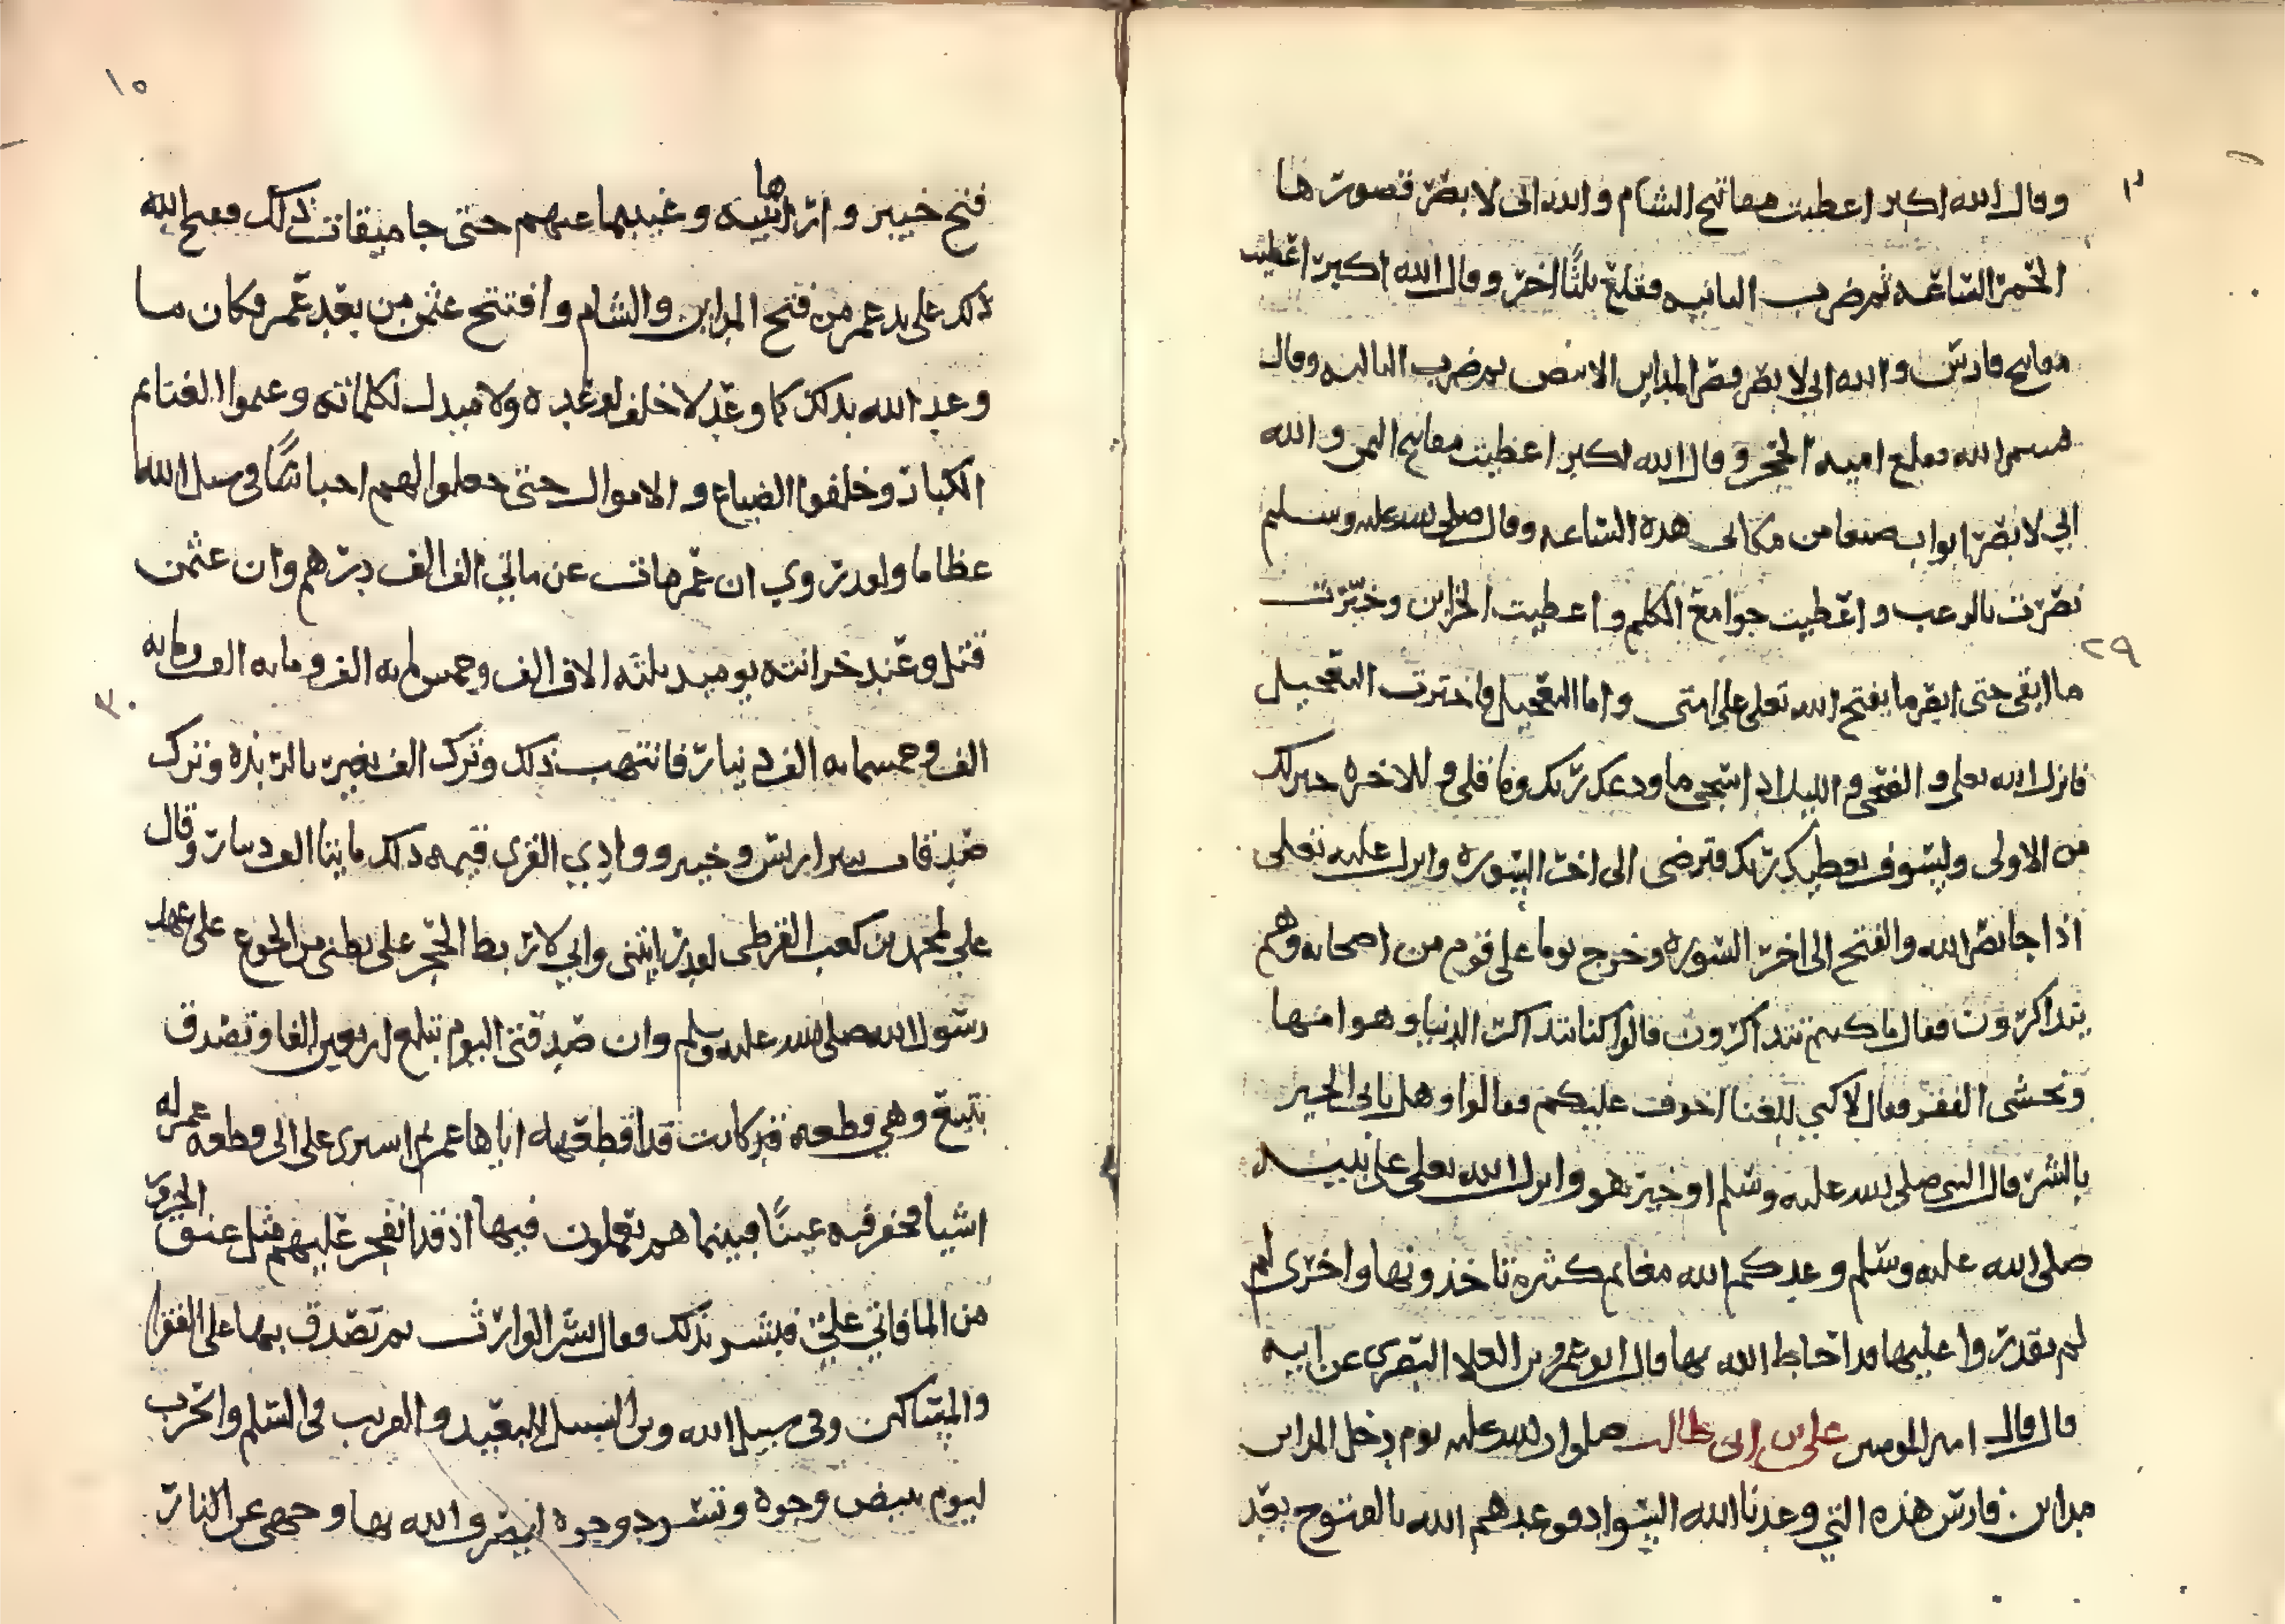 وقال الله اكبر اعطيت مفاتيح الشام والله انى لابصر قصورها
الحمر الساعه ثم ضرب الثانيه فقلع ثلثا اخر وقال الله اكبر اعطيت
مفاتيح فارس والله انى لابصر قصر المداين الابيض ثم ضرب الثالثه وقال
بسم الله فقلع بقية الحجر وقال الله اكبر اعطيت مفاتيح اليمن والله
اني لابصر ابواب صنعا من مكانى هذه الساعه وقال صلى الله عليه وسلم
نصرت بالرعب واعطيت جوامع الكلم واعطيت الخزاين وخيرت
ما ابقى حتى ما يفتح الله تعلى على امتى واما التعجيل فاخترت التعجيل
فانزل الله تعلى والضحى والليل اذا سجى ما ودعك ربك وما قلى وللاخرة خير لك
من الاولى ولسوف يعطيك ربك فترضى الى اخر السورة وانزل عليه تعلى
اذا جا نصر الله والفتح الى اخر السورة وخرج يوما على قوم من اصحابه وهم
يتذاكرون فقال ما كنتم تتذاكرون قالوا كنا نتذاكر الدنيا وهوامنها
ونخشى الفقر فقال لاكني للغنا اخوف عليكم فقالوا وهل ياتى الخير
بالشر قال النبى صلى الله عليه وسلم اوخير هو وانزل الله تعلى على نبيه
صلى الله عليه وسلم وعدكم الله مغانم كثيرة تاخذونها واخرى لم
لم تقدروا عليها قد احاط الله بها قال ابو عمرو بن العلا البصري عن ابيه
قال قال امير المومنين على بن ابى طالب صلوات الله عليه يوم دخل المداين
مداين فارس هذه التي وعدنا الله السواد وعدهم الله بالفتوح بعد
١٥
فتح خيبر واراها نبيه وغيبها عنهم حتى جا ميقات ذلك ففتح الله
ذلك على يد عمر من فتح المداين والشام وافتتح عثمن من بعد عمر فكان ما
وعد الله بذلك كما وعد لا خلف لوعده ولا مبدل لكلماته وغنموا الغنائم
الكبار وخلفوا الضياع والاموال حتى جعلوا لهم احباسا فى سبيل الله
عظاما ولقد روي ان عمر مات عن مائي الف الف درهم وان عثمن
قتل وعند خزانته يوميذ ثلثه الاف الف وخمس مايه الف ومايه الف ومايه
الف وخمسمايه الف دينار فانتهب ذلك وترك الف بعير بالربذه وترك
صدقات بير اريس وخيبر ووادي القرى قيمه ذلك مايتا الف دينار وقال
علي لمحمد بن كعب القرظى لقد رايتنى واني لاربط الحجر على بطنى من الجوع على عهد
رسول الله صلى الله عليه وسلم وان صدقتى اليوم تبلغ اربعين الفا وتصدق
بينبع وهي قطعه قد كانت قد اقطعها اياها عمر ثم اشترى على الى قطعه عمر له
اشيا فحفر فيه عينا فبينما هم يعملون فيها اذ قد انفجر عليهم مثل عنق الجزور
من الما فاتي علي فبشر بذلك فقال بشر الوارث ثم تصدق بها على الفقرا
والمساكين وفى سبيل الله وبن السبيل للبعيد والقريب فى السلم والحرب
ليوم تبيض وجوه وتسود وجوه ليصرف الله بها وجهى عن النار
٣٠
٢٩